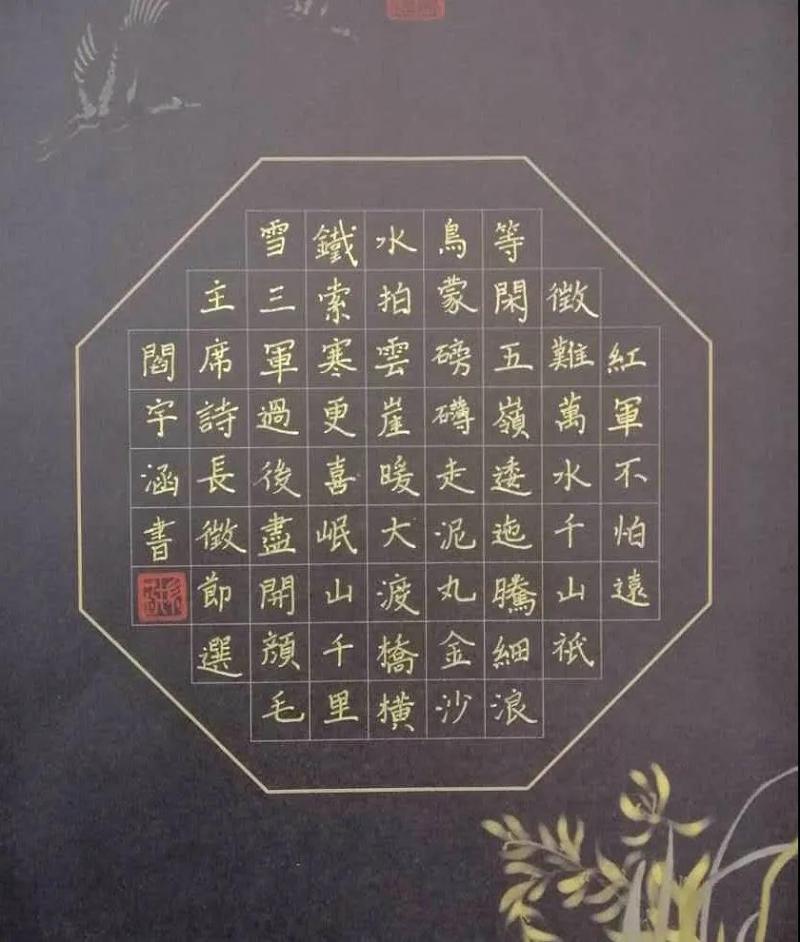 紅軍不怕遠
徵難萬水千山祇
等閑五嶺逶迤騰細浪
鳥蒙磅礴走泥丸金沙
水拍雲崖暖大渡橋橫
鐵索寒更喜岷山千里
雪三軍過後盡開顏毛
主席詩長徵節選
閻宇涵書